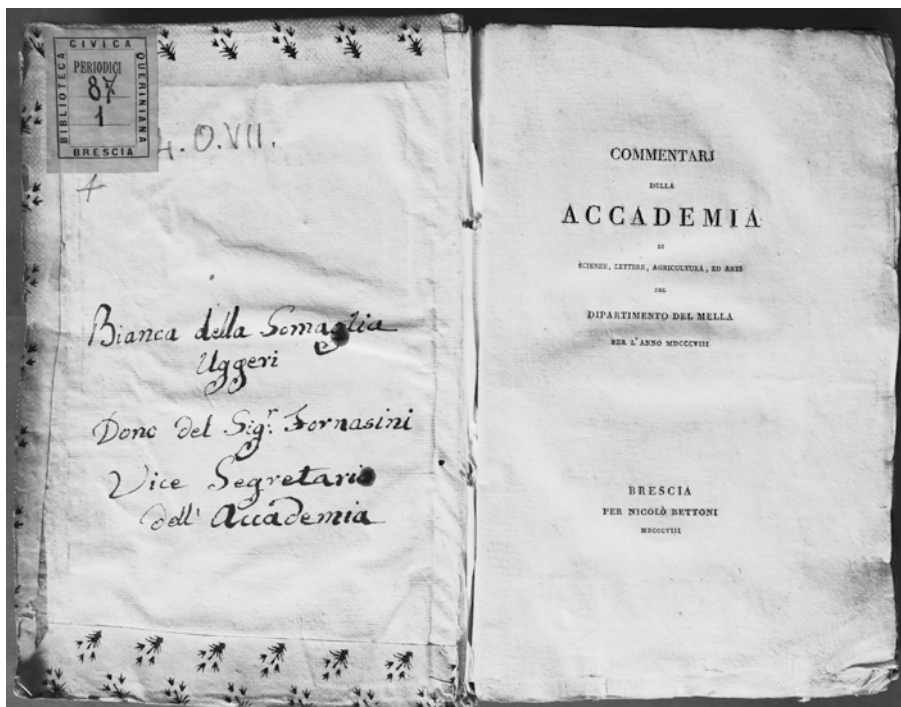 CIVICA
QUERINIANA
BRESCIA
BIBLIOTECA
PERIODICI
87
1
4.O.VII.
Bianca della Somaglia
Uggeri
Dono del Sig.r Fornasini
Vice Segretario
dell' Accademia
COMMENTARJ
DELLA
ACCADEMIA
DI
SCIENZE, LETTERE, AGRICOLTURA, ED ARTI
DEL
DIPARTIMENTO DEL MELLA
PER L'ANNO MDCCCVIII
BRESCIA
PER NICOLÒ BETTONI
MDCCCVIII